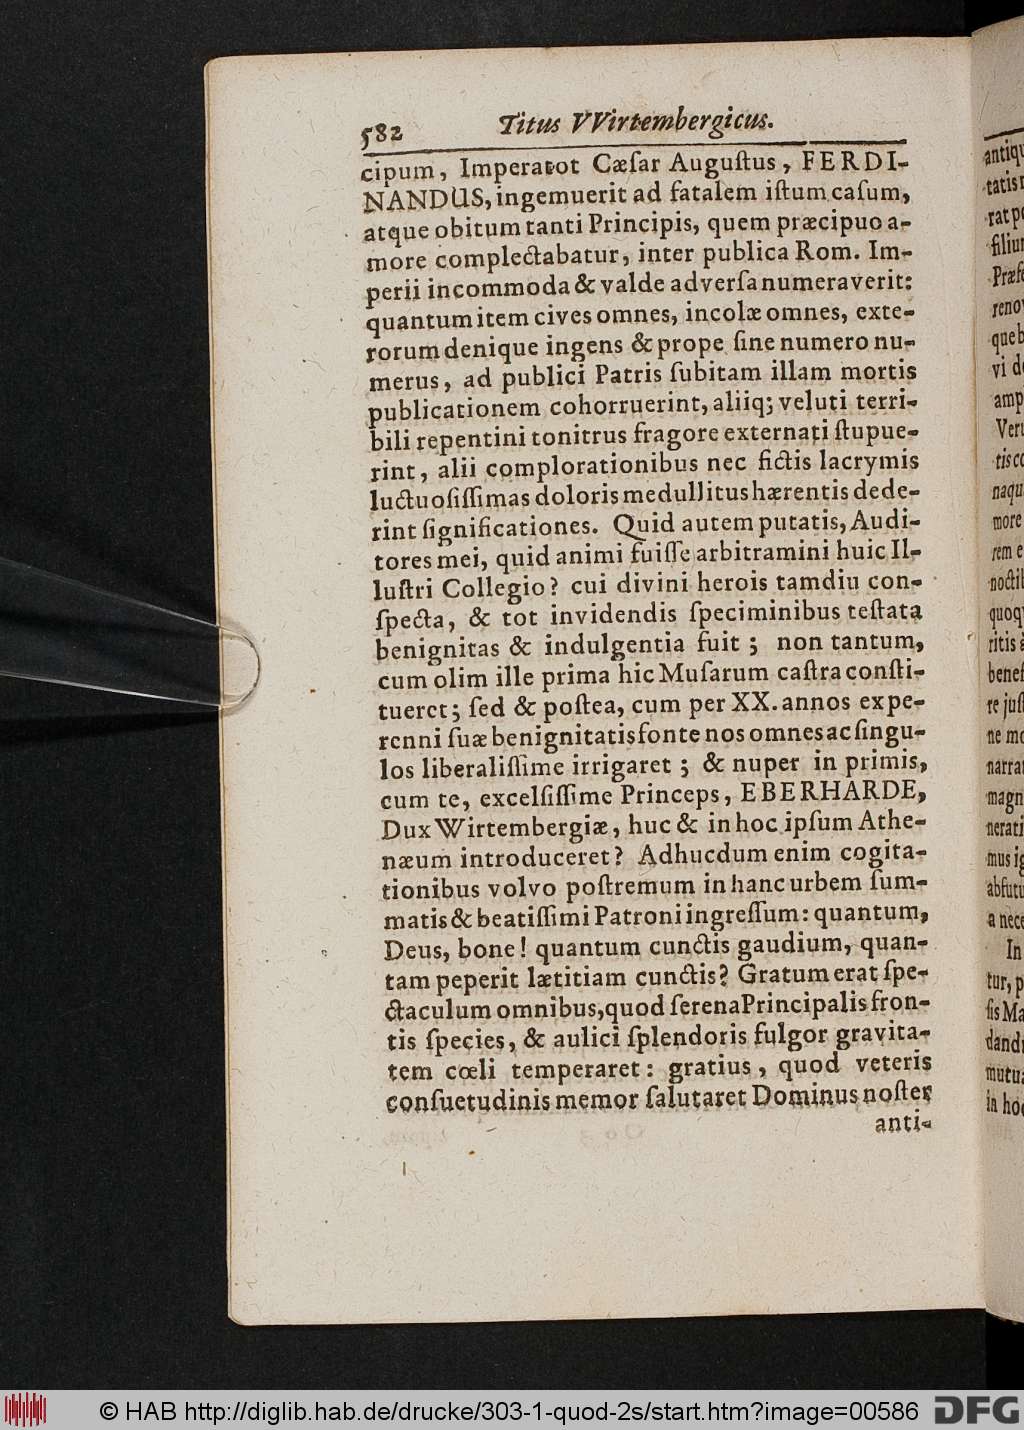 582 Titus VVirtembergicus.
cipum, Imperator Cæſar Auguſtus, FERDI-
NANDUS, ingemuerit ad fatalem iſtum caſum,
atque obitum tanti Principis, quem præcipuo a-
more complectabatur, inter publica Rom. Im-
perii incommoda & valde adverſa numeraverit:
quantum item cives omnes, incolæ omnes, exte-
rorum denique ingens & prope ſine numero nu-
merus, ad publici Patris ſubitam illam mortis
publicationem cohorruerint, aliiq; veluti terri-
bili repentini tonitrus fragore externati ſtupue-
rint, alii complorationibus nec fictis lacrymis
luctuoſiſſimas doloris medullitus hærentis dede-
rint ſignificationes. Quid autem putatis, Audi-
tores mei, quid animi fuiſſe arbitramini huic Il-
luſtri Collegio? cui divini herois tamdiu con-
ſpecta, & tot invidendis ſpeciminibus teſtata
benignitas & indulgentia fuit; non tantum,
cum olim ille prima hic Muſarum caſtra conſti-
tueret; ſed & poſtea, cum per XX. annos expe-
renni ſuæ benignitatis fonte nos omnes ac ſingu-
los liberaliſſime irrigaret; & nuper in primis,
cum te, excelſiſſime Princeps, EBERHARDE,
Dux Wirtembergiæ, huc & in hoc ipſum Athe-
næum introduceret? Adhucdum enim cogita-
tionibus volvo poſtremum in hanc urbem ſum-
matis & beatiſſimi Patroni ingreſſum: quantum,
Deus, bone! quantum cunctis gaudium, quan-
tam peperit lætitiam cunctis? Gratum erat ſpe-
ctaculum omnibus, quod ſerena Principalis fron-
tis ſpecies, & aulici ſplendoris fulgor gravita-
tem cœli temperaret: gratius, quod veteris
conſuetudinis memor ſalutaret Dominus noſter
anti-
antiqu
tatis
rat pe
filiu
Præfe
reno
que b
vi de
amp
Veru
tis co
naqu
more
rem e
noctil
quoqu
ritis à
benef
re juſt
ne mo
narra
magn
nerati
mus ig
abfutu
a nece
In
tur, p
ſis Ma
dandi
mutua
in hoc
© HAB http://diglib.hab.de/drucke/303-1-quod-2s/start.htm?image=00586 DFG